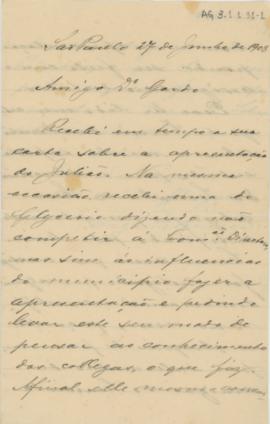 AG 3.1.1.31-1
São Paulo 27 de Junho de 1903
Amigo Dr. Gordo
Recebi em tempo a sua
carta sobre a apresentação
do Julião. Na mesma
occasião recebi uma do
Glycerio dizendo não
competir á Com.ão Directora
mas sim ás influencias
do municipio fazer a
apresentação e pedindo
levar este seu modo de
pensar ao conhecimento
dos collegas, o que fiz.
Afinal elle mesmo